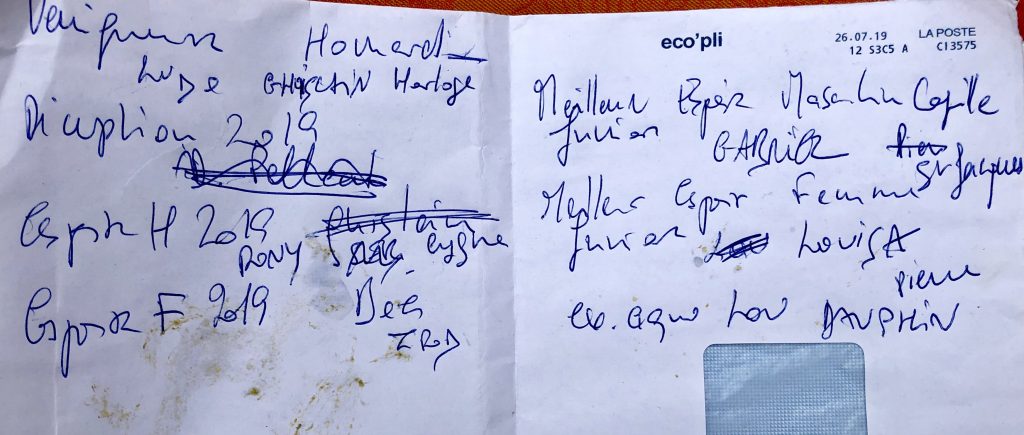 Vainqueurs Homard
LuDe GHISLAIN Horloge
Déception 2019
Espoir H 2019
RONY Cygne
Espoir F 2019 Déa
IROD
eco'pli
26.07.19 LA POSTE
12 S3C5 A C13575
Meilleur Espoir Masculin
Junior GABRIEL St Jacques
Meilleur Espoir Femme
Junior LOUISA
pierre
ex. aequo Lou DAUPHIN